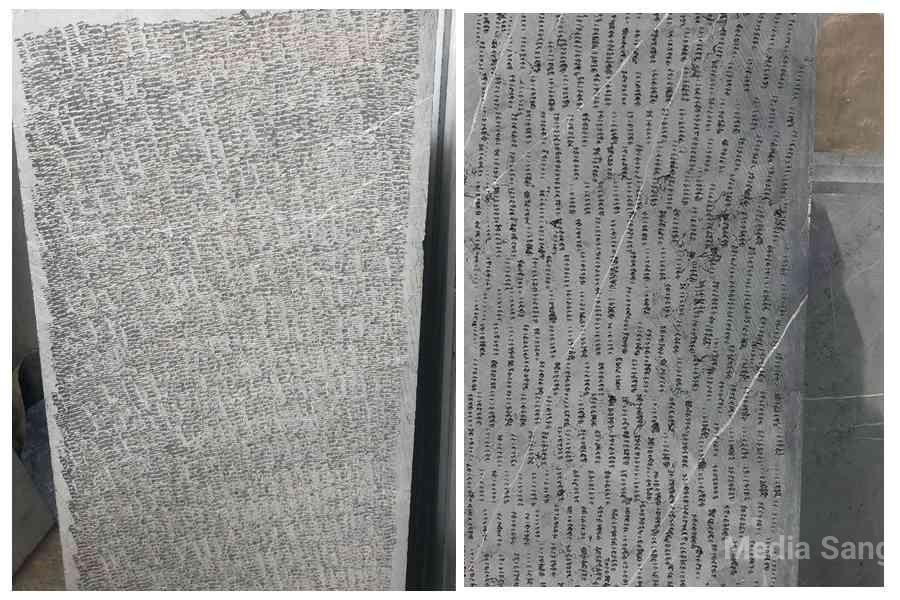 Media Sang